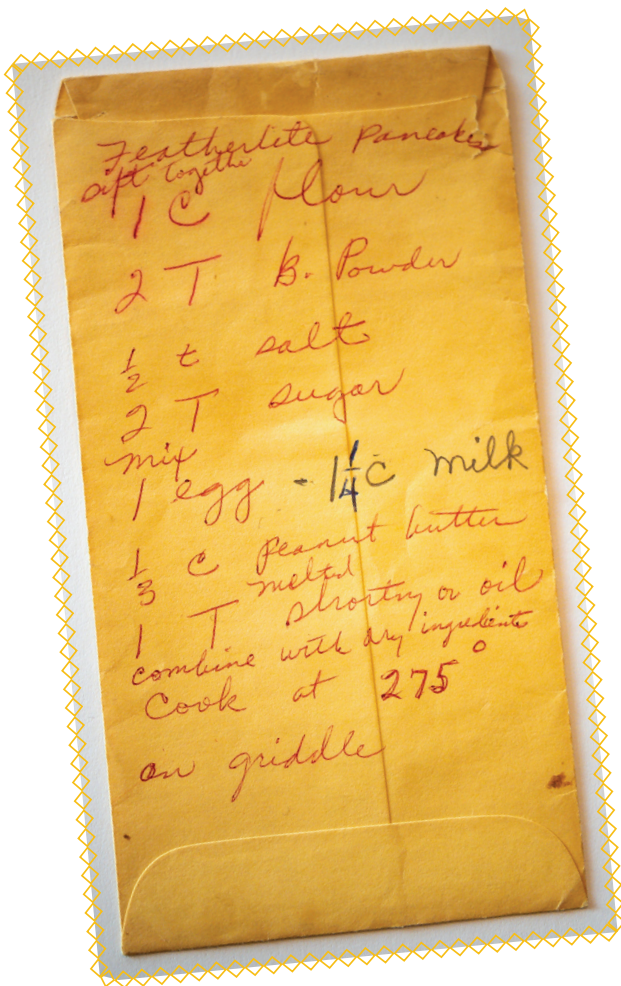 Featherlite Pancakes
Sift together
1 C flour
2 T B. Powder
1/2 t salt
2 T sugar
mix
1 egg - 1 1/4 c milk
1/3 C Peanut butter
melted
1 T shortng or oil
combine with dry ingredients
Cook at 275°
on griddle